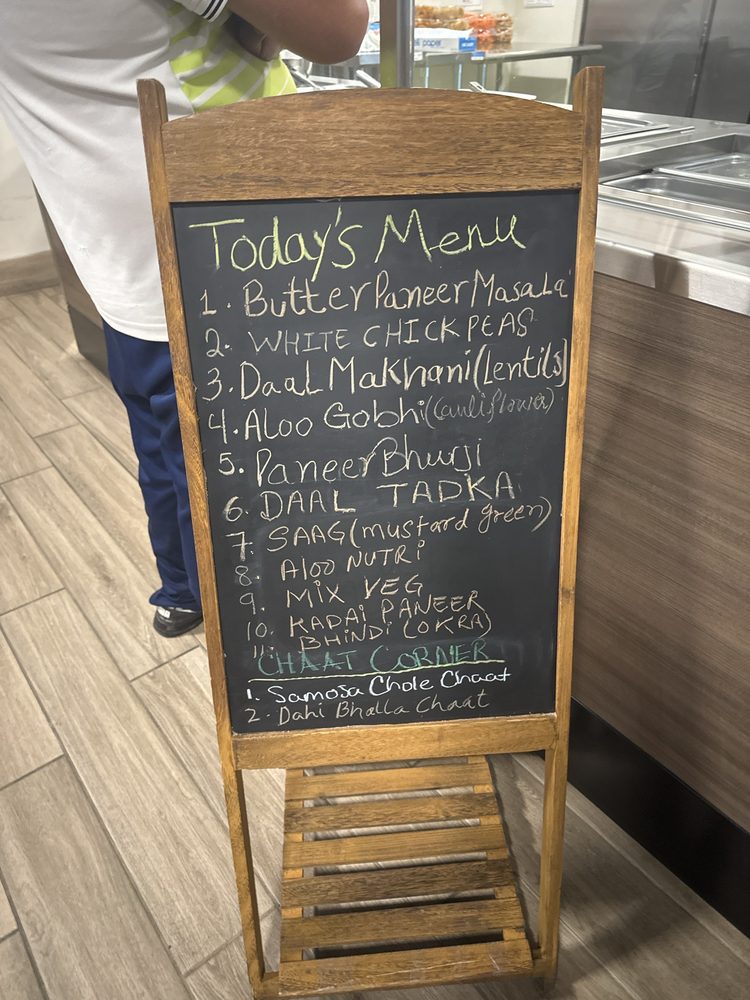 Today's Menu
1. Butter Paneer Masala
2. WHITE CHICKPEAS
3. Daal Makhani (Lentils)
4. Aloo Gobhi (cauliflower)
5. Paneer Bhurji
6. DAAL TADKA
7. SAAG (mustard green)
8. Aloo NUTRi
9. MIX VEG
10. KADAI PANEER
11. BHINDI (OKRA)
CHAAT CORNER
1. Samosa Chole Chaat
2. Dahi Bhalla Chaat